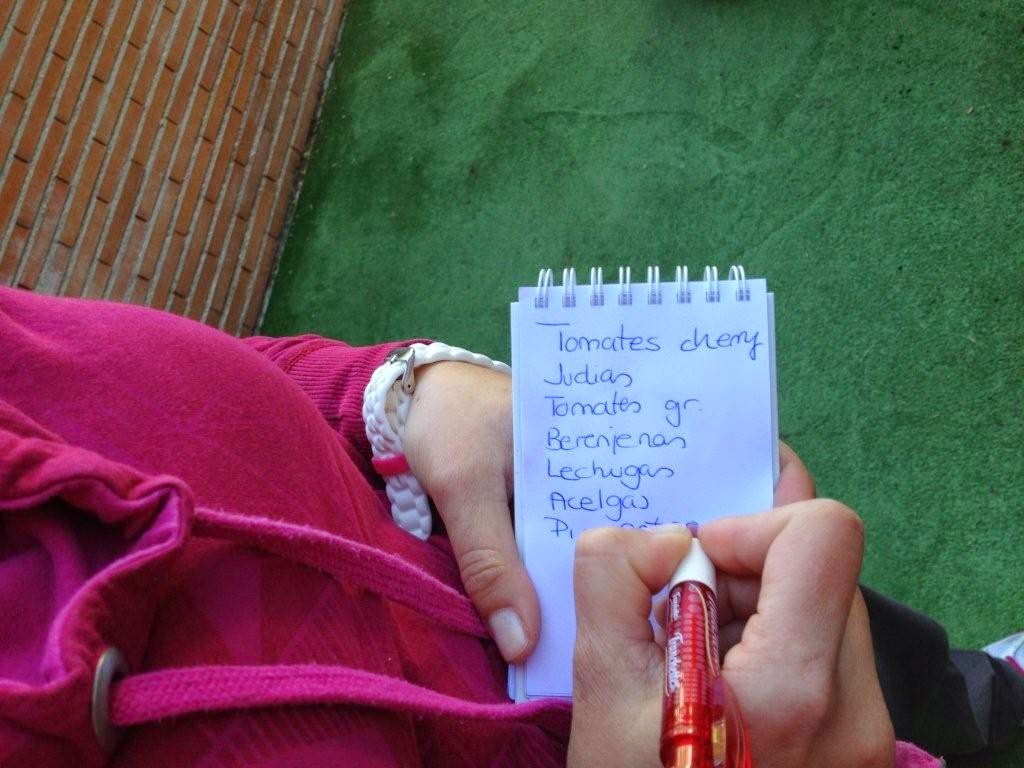 Tomates cherry
Judias
Tomates gr.
Berenjenas
Lechugas
Acelgas